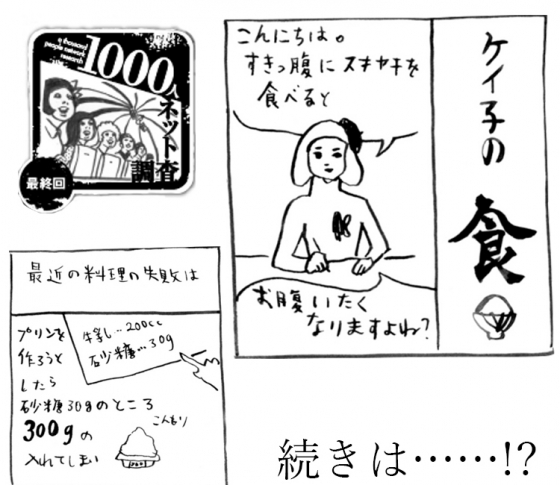 a thousand
people network
research
1000人
ネット
調査
最終回
ケイ子の
食
こんにちは。
すきっ腹にスキヤキを
食べると
お腹いたく
なりますよね?
最近の料理の失敗は
牛乳…200cc
砂糖…30g
プリンを
作ろうと
したら
砂糖30gのところ
300gの
入れてしまい
こんもり
続きは……!?